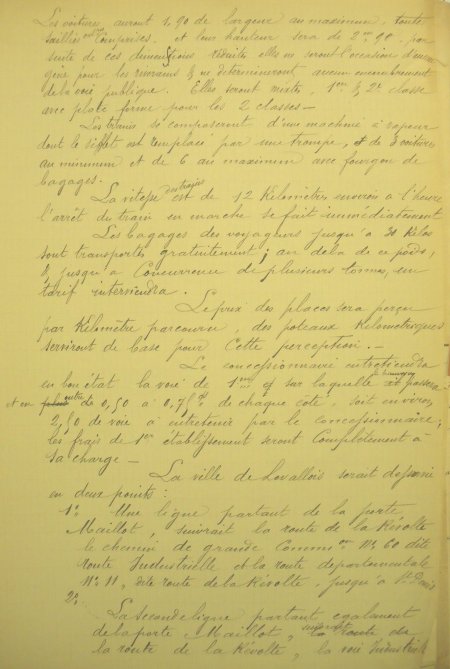 Les voitures auront 1,90 de largeur au maximum, toutes
saillies comprises. et leur hauteur sera de 2m90. par
suite de ces dimensions réduites, elles ne seront l'occasion d'aucune
gêne pour les riverains & ne détermineront aucun encombrement
de la voie publique. Elles seront mixtes, 1ère & 2e classe
avec plate forme pour les 2 classes —
Les trains se composeront d'une machine à vapeur
dont le sifflet est remplacé par une trompe, et de 3 voitures
au minimum et de 6 au maximum avec fourgon de
bagages.
La vitesse des trains est de 12 Kilomètres environ à l'heure
l'arrêt du train en marche se fait immédiatement
Les bagages des voyageurs jusqu'à 30 Kilos
sont transportés gratuitement; au delà de ce poids,
& jusqu'à concurrence de plusieurs tonnes, un
tarif interviendra.
Le prix des places sera perçu
par Kilomètre parcouru, des poteaux Kilométriques
serviront de base pour cette perception. —
Le concessionnaire entretiendra
en bon état la voie de 1m sur laquelle
et en outre de 0,50 à 0,75 de chaque côté, soit environ
2,50 de voie à entretenir par le concessionnaire;
les frais de 1er établissement seront complètement à
sa charge —
La ville de Levallois serait desservie
en deux points:
1o Une ligne partant de la porte
Maillot, suivrait la route de la Révolte
le chemin de grande Common No 60 dite
route Industrielle et la route départementale
No 11, dite route de la Révolte, jusqu'à St Denis
2o.
La seconde ligne partant également
de la porte Maillot, la route de
la route de la Révolte, la voie Industrielle